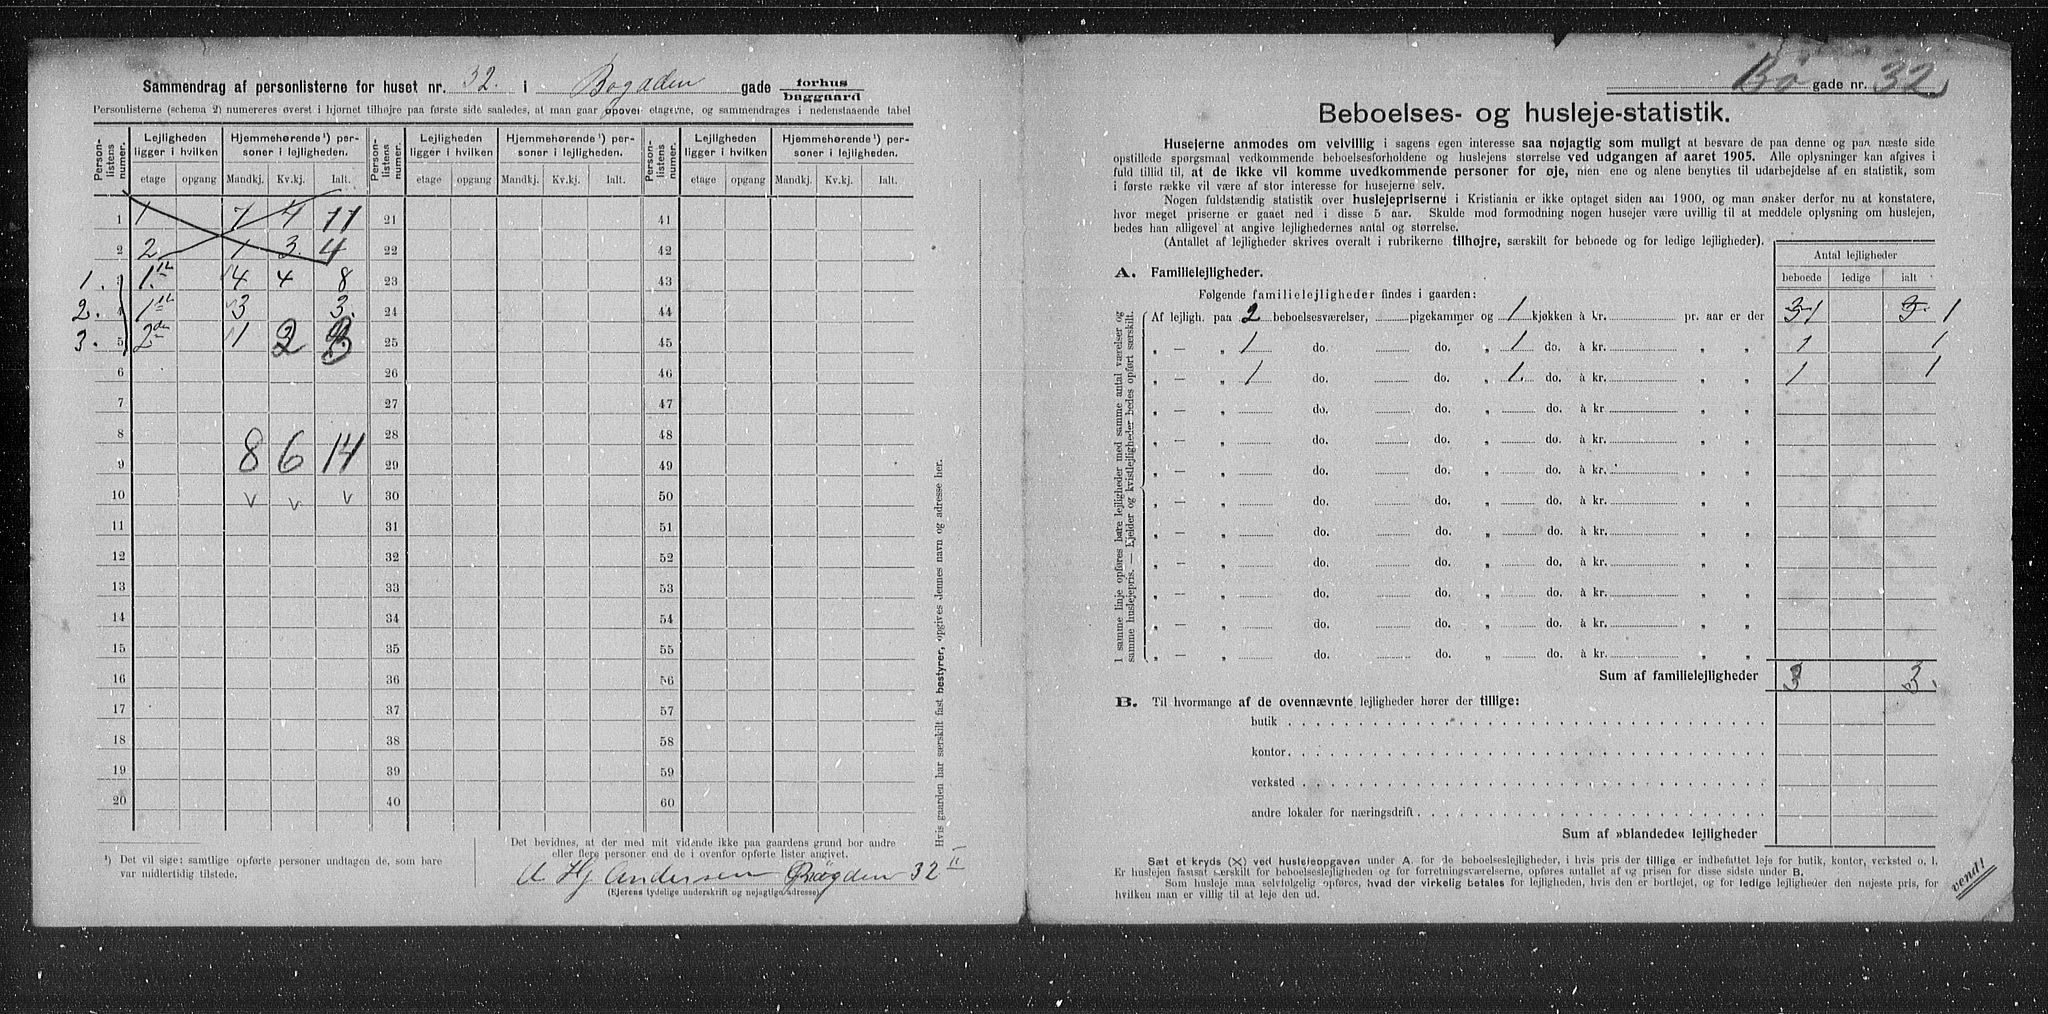 Sammendrag af personlisterne for huset nr. 32. i Bogaden gade forhus baggaard
Personlisterne (schema 2) numereres øverst i hjørnet tilhøjre paa første side saaledes, at man gaar opover etagerne, og sammendrages i nedenstaaende tabel
Person-listens numer. Lejligheden ligger i hvilken Hjemmehørende ¹) personer i lejligheden. Person-listens numer. Lejligheden ligger i hvilken Hjemmehørende ¹) personer i lejligheden. Person-listens numer. Lejligheden ligger i hvilken Hjemmehørende ¹) personer i lejligheden.
etage opgang Mandkj. Kv.kj. Ialt. etage opgang Mandkj. Kv.kj. Ialt. etage opgang Mandkj. Kv.kj. Ialt.
1 1 7 4 11 21 41
2 2 1 3 4 22 42
1. 3 1 4 4 8 23 43
2. 4 1 3 3. 24 44
3. 5 2den 1 2 3 25 45
6 26 46
7 27 47
8 28 48
8 6 14
9 29 49
10 v v v 30 50
11 31 51
12 32 52
13 33 53
14 34 54
15 35 55
16 36 56
17 37 57
18 38 58
19 39 59
20 40 60
¹) Det vil sige: samtlige opførte personer undtagen de, som bare
var midlertidig tilstede.
Det bevidnes, at der med mit vidende ikke paa gaardens grund bor andre
eller flere personer end de i ovenfor opførte lister angivet.
A Hj Andersen Bøgden 32 II
(Ejerens tydelige underskrift og nøjagtige adresse)
Hvis gaarden har særskilt fast bestyrer, opgives dennes navn og adresse her.
Bø gade nr. 32
Beboelses- og husleje-statistik.
Husejerne anmodes om velvillig i sagens egen interesse saa nøjagtig som muligt at besvare de paa denne og paa næste side
opstillede spørgsmaal vedkommende beboelsesforholdene og huslejens størrelse ved udgangen af aaret 1905. Alle oplysninger kan afgives i
fuld tillid til, at de ikke vil komme uvedkommende personer for øje, men ene og alene benyttes til udarbejdelse af en statistik, som
i første række vil være af stor interesse for husejerne selv.
Nogen fuldstændig statistik over huslejepriserne i Kristiania er ikke optaget siden aar 1900, og man ønsker derfor nu at konstatere,
hvor meget priserne er gaaet ned i disse 5 aar. Skulde mod formodning nogen husejer være uvillig til at meddele oplysning om huslejen,
bedes han alligevel at angive lejlighedernes antal og størrelse.
(Antallet af lejligheder skrives overalt i rubrikerne tilhøjre, særskilt for beboede og for ledige lejligheder).
Antal lejligheder
beboede ledige ialt
A. Familielejligheder.
Følgende familielejligheder findes i gaarden:
Af lejligh. paa 2 beboelsesværelser, pigekammer og 1 kjøkken à kr. pr. aar er der 3 1 3 1
„ — „ 1 do. do. „ 1 do. à kr. „ „ 1 1
„ — „ 1 do. do. „ 1. do. à kr. „ „ 1 1
„ — „ do. do. „ do. à kr. „ „
„ — „ do. do. „ do. à kr. „ „
„ — „ do. do. „ do. à kr. „ „
„ — „ do. do. „ do. à kr. „ „
„ — „ do. do. „ do. à kr. „ „
„ — „ do. do. „ do. à kr. „ „
„ — „ do. do. „ do. à kr. „ „
„ — „ do. do. „ do. à kr. „ „
„ — „ do. do. „ do. à kr. „ „
I samme linje opføres bare lejligheder med samme antal værelser og
samme huslejepris. — Kjelder og kvistlejligheder bedes opført særskilt.
Sum af familielejligheder 3 3.
B. Til hvormange af de ovennævnte lejligheder hører der tillige:
butik
kontor
verksted
andre lokaler for næringsdrift
Sum af »blandede« lejligheder
Sæt et kryds (X) ved huslejeopgaven under A. for de beboelseslejligheder, i hvis pris der tillige er indbefattet leje for butik, kontor, verksted o. l.
Er huslejen fastsat særskilt for beboelseslejligheden og for forretningsværelserne, opføres antallet af og prisen for disse sidste under B.
Som husleje maa selvfølgelig opføres, hvad der virkelig betales for lejligheden, hvis den er bortlejet, og for ledige lejligheder den nøjeste pris, for
hvilken man er villig til at leje den ud.
vend!